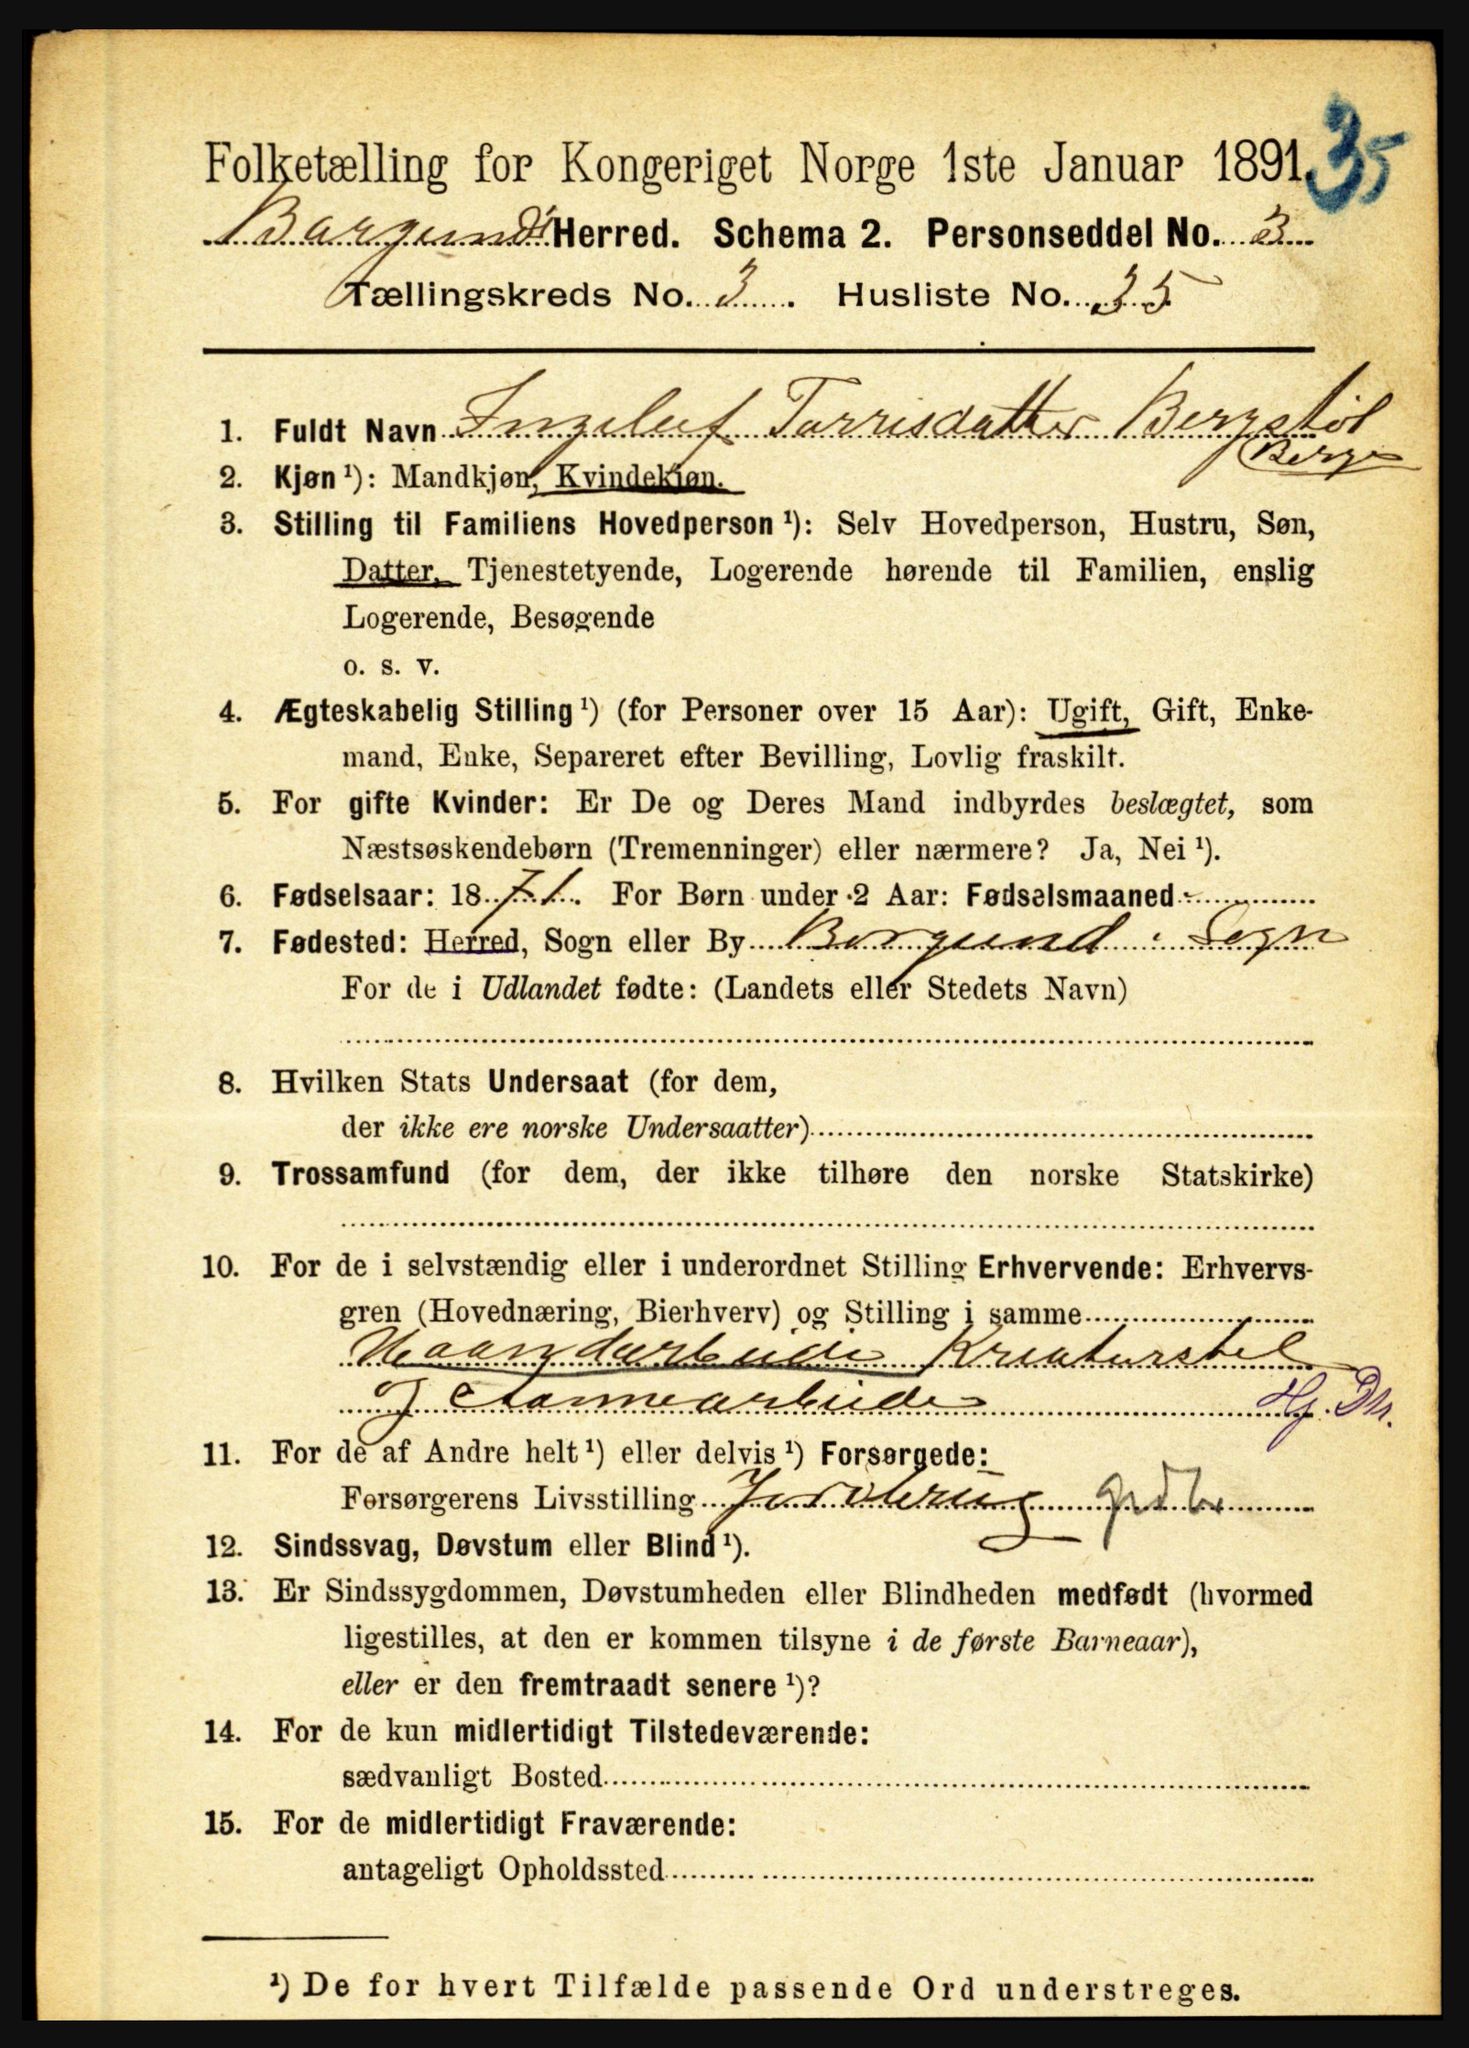 35
Folketælling for Kongeriget Norge 1ste Januar 1891.
Borgunds Herred. Schema 2. Personseddel No. 3
Tællingskreds No. 3. Husliste No. 35
1. Fuldt Navn Ingeleif Torrisdatter Bergstøl
Berge
2. Kjøn ¹): Mandkjøn, Kvindekjøn.
3. Stilling til Familiens Hovedperson ¹): Selv Hovedperson, Hustru, Søn,
Datter, Tjenestetyende, Logerende hørende til Familien, enslig
Logerende, Besøgende
o. s. v.
4. Ægteskabelig Stilling ¹) (for Personer over 15 Aar): Ugift, Gift, Enke-
mand, Enke, Separeret efter Bevilling, Lovlig fraskilt.
5. For gifte Kvinder: Er De og Deres Mand indbyrdes beslægtet, som
Næstsøskendebørn (Tremenninger) eller nærmere? Ja, Nei ¹).
6. Fødselsaar: 1871. For Børn under 2 Aar: Fødselsmaaned
7. Fødested: Herred, Sogn eller By Borgund i Sogn
For de i Udlandet fødte: (Landets eller Stedets Navn)
8. Hvilken Stats Undersaat (for dem,
der ikke ere norske Undersaatter)
9. Trossamfund (for dem, der ikke tilhøre den norske Statskirke)
10. For de i selvstændig eller i underordnet Stilling Erhvervende: Erhvervs-
gren (Hovednæring, Bierhverv) og Stilling i samme
Haandarbeide Kreaturstel
og Aannearbeide Hj. Dtr.
11. For de af Andre helt ¹) eller delvis ¹) Forsørgede:
Forsørgerens Livsstilling Jordbrug
12. Sindssvag, Døvstum eller Blind ¹).
13. Er Sindssygdommen, Døvstumheden eller Blindheden medfødt (hvormed
ligestilles, at den er kommen tilsyne i de første Barneaar),
eller er den fremtraadt senere ¹)?
14. For de kun midlertidigt Tilstedeværende:
sædvanligt Bosted
15. For de midlertidigt Fraværende:
antageligt Opholdssted
¹) De for hvert Tilfælde passende Ord understreges.